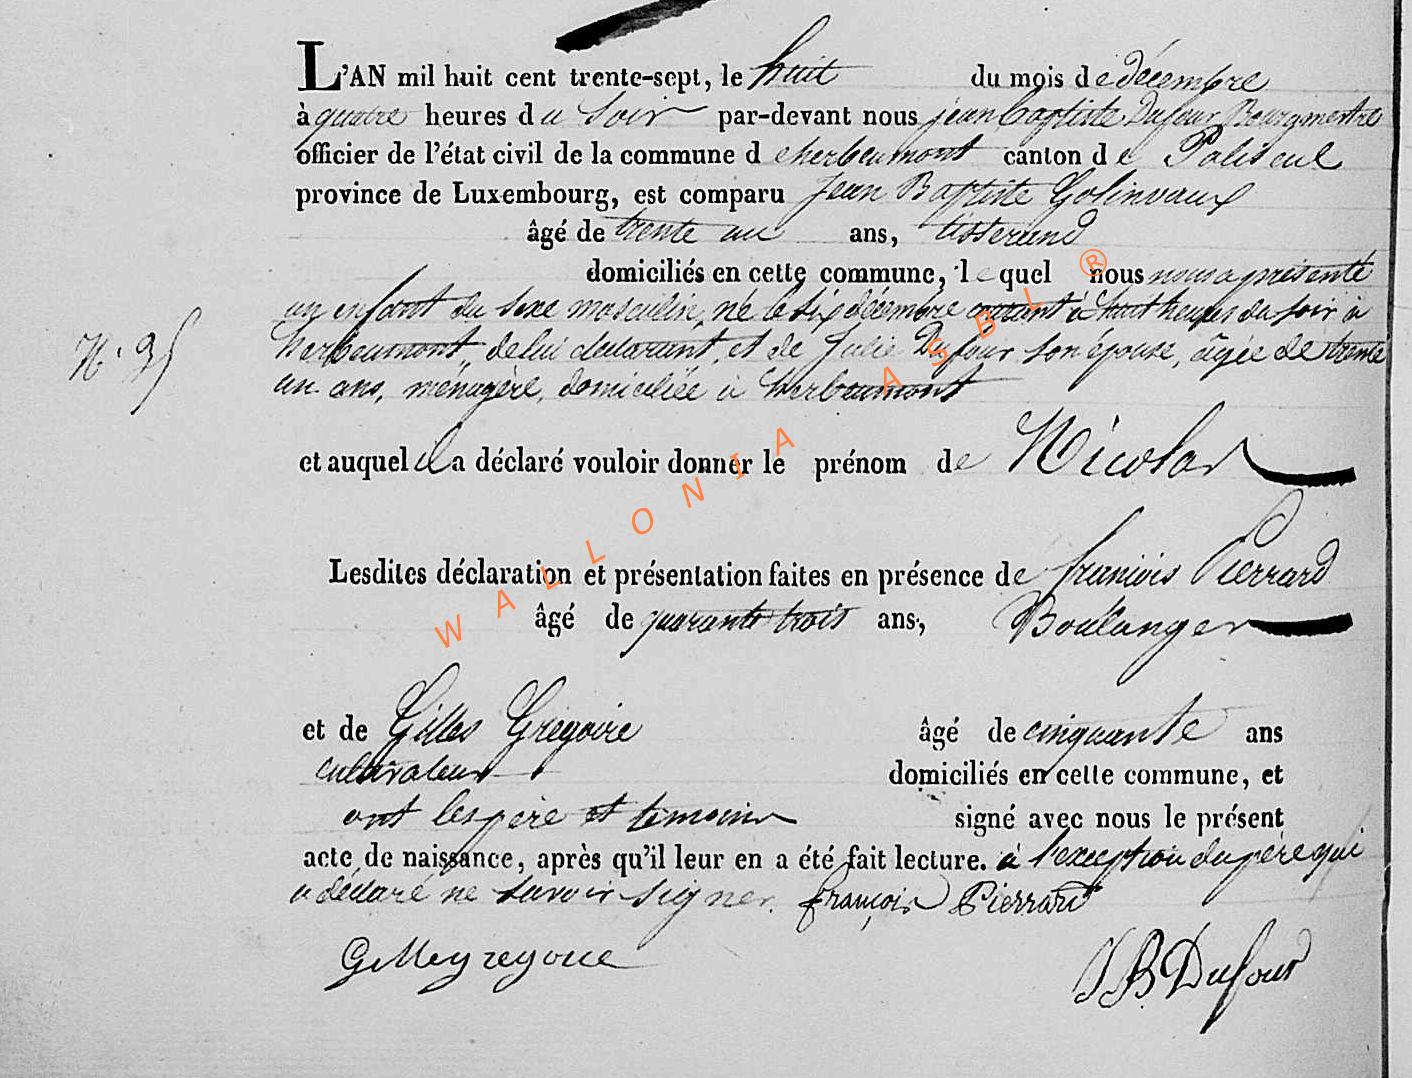 L'AN mil huit cent trente-sept, le huit du mois de décembre
à quatre heures du soir par-devant nous jean baptiste Dufour Bourgmestre
officier de l'état civil de la commune d herbeumont canton de Paliseul
province de Luxembourg, est comparu Jean Baptiste Golinvaux
âgé de trente un ans, tisserand
domiciliés en cette commune, lequel nous nous a présenté
un enfant du sexe masculin, né le six décembre courant à huit heures du soir à
herbeumont, de lui déclarant, et de Julie Dufour son épouse, âgée de trente
un ans, ménagère, domiciliée à herbeumont
N. 35
et auquel il a déclaré vouloir donner le prénom de Nicolas
Lesdites déclaration et présentation faites en présence de françois Pierrard
âgé de quarante trois ans, Boulanger
et de Gilles Grégoire âgé de cinquante ans
cultivateur domiciliés en cette commune, et
ont les père et temoins signé avec nous le présent
acte de naissance, après qu'il leur en a été fait lecture. à l'exception du père qui
a déclaré ne savoir signer. françois Pierrard
Gille gregoire
J B Dufour
WALLONIA ASBL ®